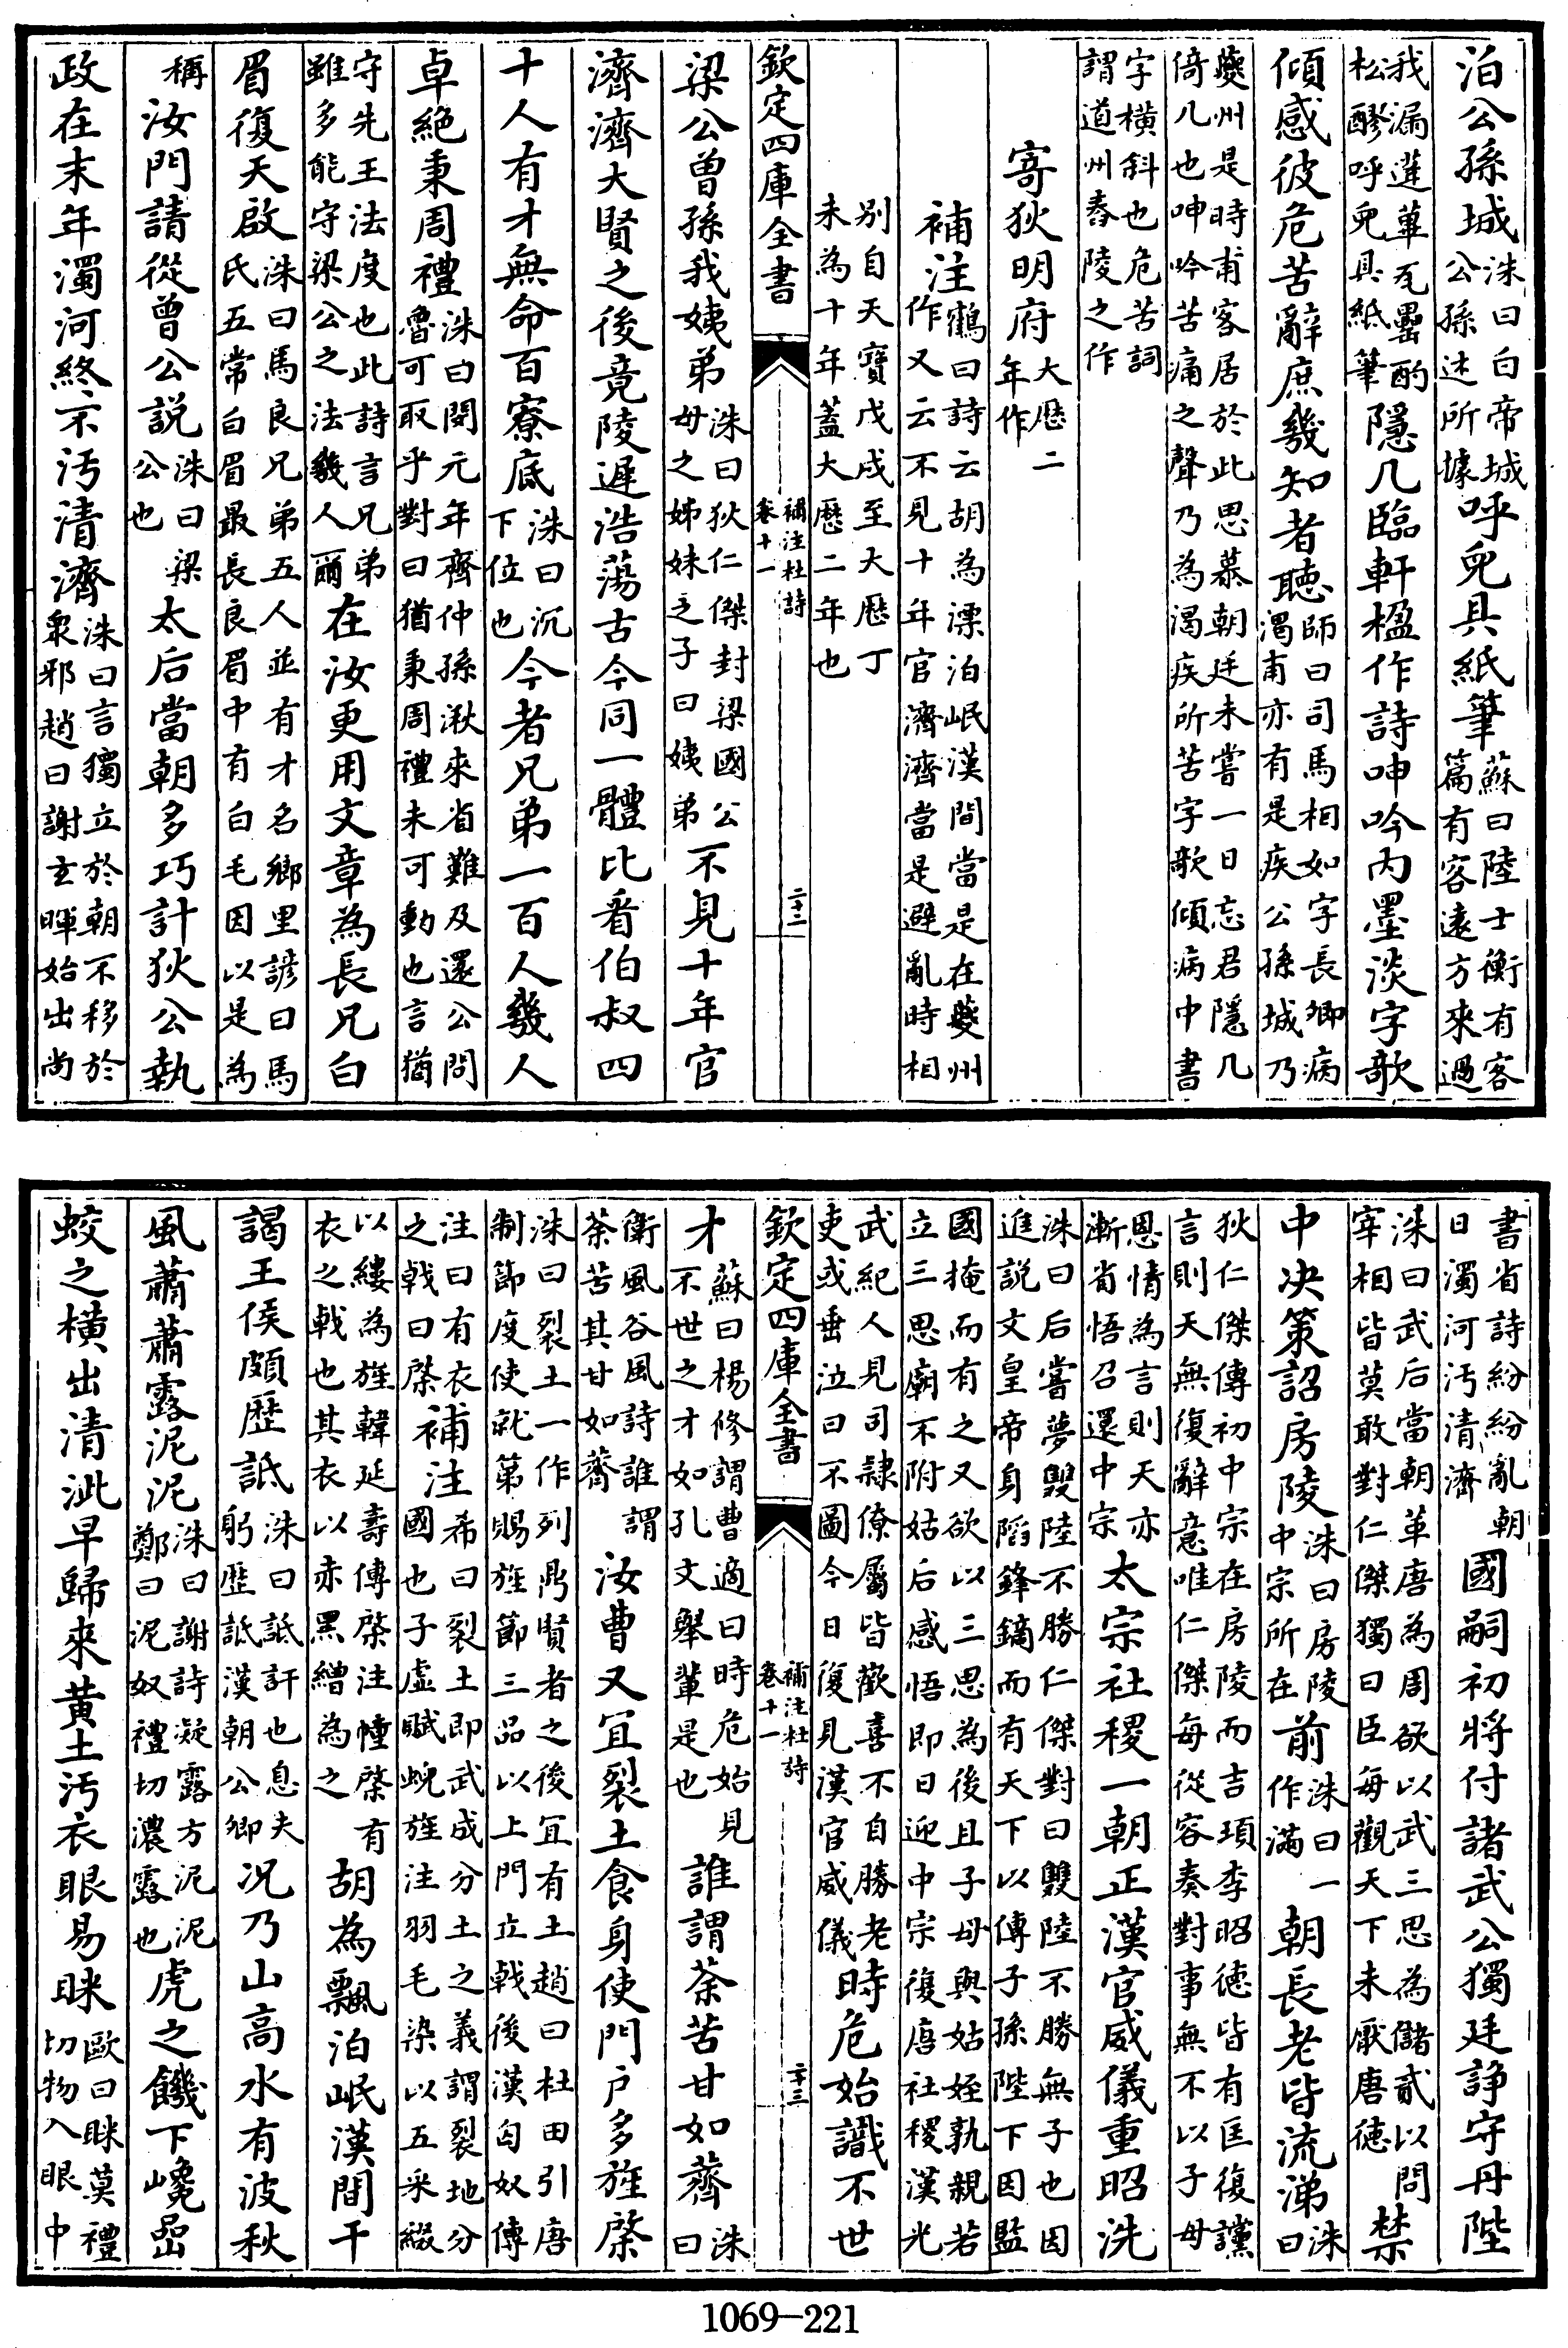 泊公孫城洙曰白帝城公孫述所據呼兒具紙筆蘇曰陸士衡有客篇有容遠方來過
我漏蓮華瓦罍酌松醪呼兒具紙筆隱几臨軒楹作詩呻吟内墨淡字欹
傾感彼危苦辭庶幾知者聽師曰司馬相如字長卿病渴甫亦有是疾公孫城乃
夔州是時甫客居於此思慕朝廷未嘗一日忘君隱几倚几也呻吟苦痛之聲乃為渴疾所苦字歌傾病中書
字横斜也危苦詞謂道州舂陵之作
寄狄明府大厯二年作
補注鶴曰詩云胡為漂泊岷漢間當是在夔州作又云不見十年官濟濟當是避亂時相
別自天寶戊戌至大厯丁未為十年蓋大厯二年也
欽定四庫全書 補注杜詩 卷十一 二十二
梁公曾孫我姨弟洙曰狄仁傑封梁國公母之姊妹之子曰姨弟不見十年官
濟濟大賢之後竟陵遲浩蕩古今同一體比看伯叔四
十人有才無命百寮底洙曰沉下位也今者兄弟一百人幾人
卓絶秉周禮洙曰閔元年齊仲孫湫來省難及還公問魯可取乎對曰猶秉周禮未可動也言猶
守先王法度也此詩言兄弟雖多能守梁公之法幾人爾在汝更用文章為長兄白
眉復天啟洙曰馬良兄弟五人並有才名鄉里諺曰馬氏五常白眉最長良眉中有白毛因以是為
稱汝門請從曾公説洙曰梁公也太后當朝多巧計狄公執
政在末年濁河終不污清濟洙曰言獨立於朝不移於衆邪趙曰謝玄暉始出尚
書省詩紛紛亂朝日濁河污清濟國嗣初將付諸武公獨廷諍守丹陛
洙曰武后當朝革唐為周欲以武三思為儲貳以問宰相皆莫敢對仁傑獨曰臣每觀天下未厭唐德禁
中決策詔房陵洙曰房陵中宗所在前洙曰一作滿朝長老皆流涕洙曰
狄仁傑傳初中宗在房陵而吉頊李昭德皆有匡復讜言則天無復辭意唯仁傑每從容奏對事無不以子母
恩情為言則天亦漸省悟召還中宗太宗社稷一朝正漢官威儀重昭洗
洙曰后嘗夢雙陸不勝仁傑對曰雙陸不勝無子也因進説文皇帝身蹈鋒鏑而有天下以傳子孫陛下因監
國掩而有之又欲以三思為後且子母與姑姪孰親若立三思廟不附姑后感悟即日迎中宗復唐社稷漢光
武紀人見司隷僚屬皆歡喜不自勝老吏或垂泣曰不圖今日復見漢官威儀時危始識不世
欽定四庫全書 補注杜詩 卷十一 二十三
才蘇曰楊修謂曹適曰時危始見不世之才如孔文舉輩是也誰謂荼苦甘如薺洙曰
衛風谷風詩誰謂荼苦其甘如薺汝曹又宜裂土食身使門户多旌棨
洙曰裂土一作列鼎賢者之後宜有土趙曰杜田引唐制節度使就第賜旌節三品以上門立戟後漢匈奴傳
注曰有衣之戟曰棨補注希曰裂土即武成分土之義謂裂地分國也子虛賦蜺旌注羽毛染以五采綴
以縷為旌韓延壽傳棨注幢棨有衣之戟也其衣以赤黑繒為之胡為飄泊岷漢間干
謁王侯頗歴詆洙曰詆訐也息夫躬歴詆漢朝公卿况乃山高水有波秋
風蕭蕭露泥泥洙曰謝詩凝露方泥泥鄭曰泥奴禮切濃露也虎之饑下巉嵒
蛟之横出清泚早歸來黄土污衣眼易眯歐曰眯莫禮切物入眼中
1069-221